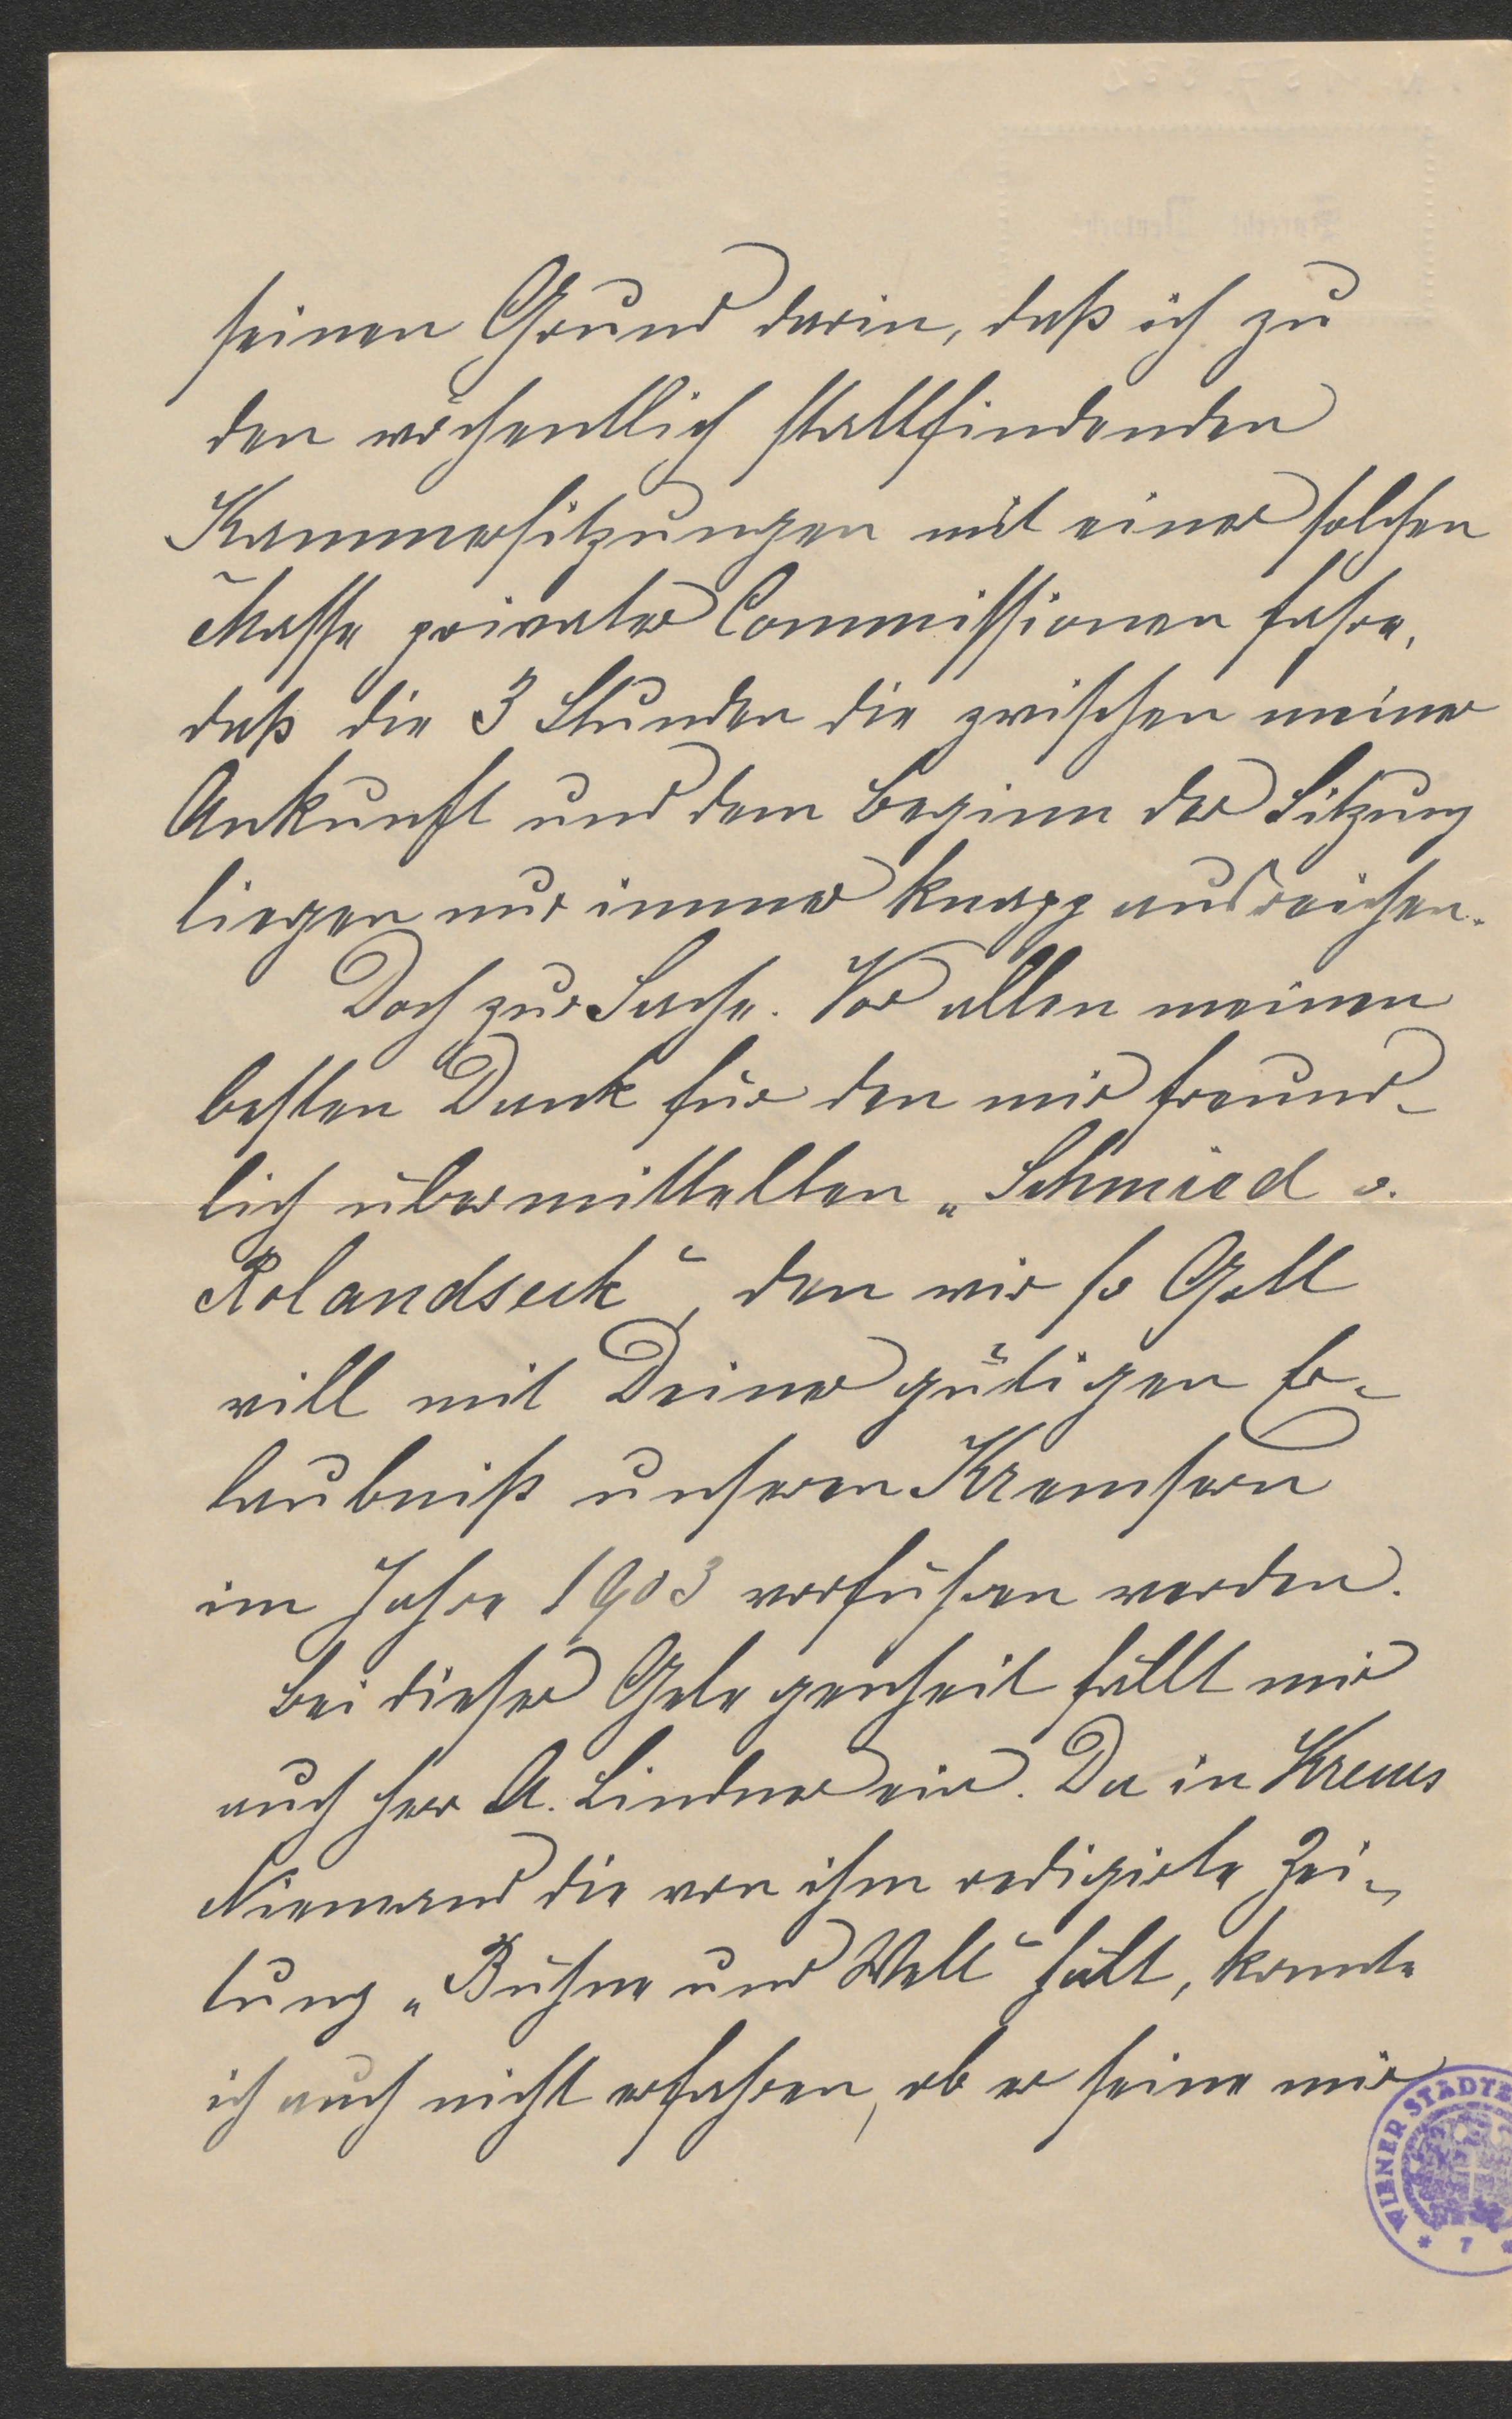 seinen Grund darin, daß ich zu
den wöchentlich stattfindenden
Kammersitzungen mit einer solchen
Masse privater Commissionen fahre,
daß die 3 Stunden die zwischen meiner
Ankunft und dem Beginn der Sitzung
liegen nur immer knapp ausreichen.
Doch zur Sache. Vor allen meinen
besten Dank für den mir freund-
lich übermittelten „Schmied v.
Rolandseck“, den wir so Gott
will mit Deiner gütigen Er-
laubniß unseren Kremsern
im Jahre 1903 vorführen werden.
Bei dieser Gelegenheit fällt mir
auch Herr A. Lindner ein. Da in Krems
Niemand die von ihm redigirte Zei-
tung „Bühne und Welt“ hält, konnte
ich auch nicht erfahren, ob er seine mir
WIENER STADTB
* 7 *